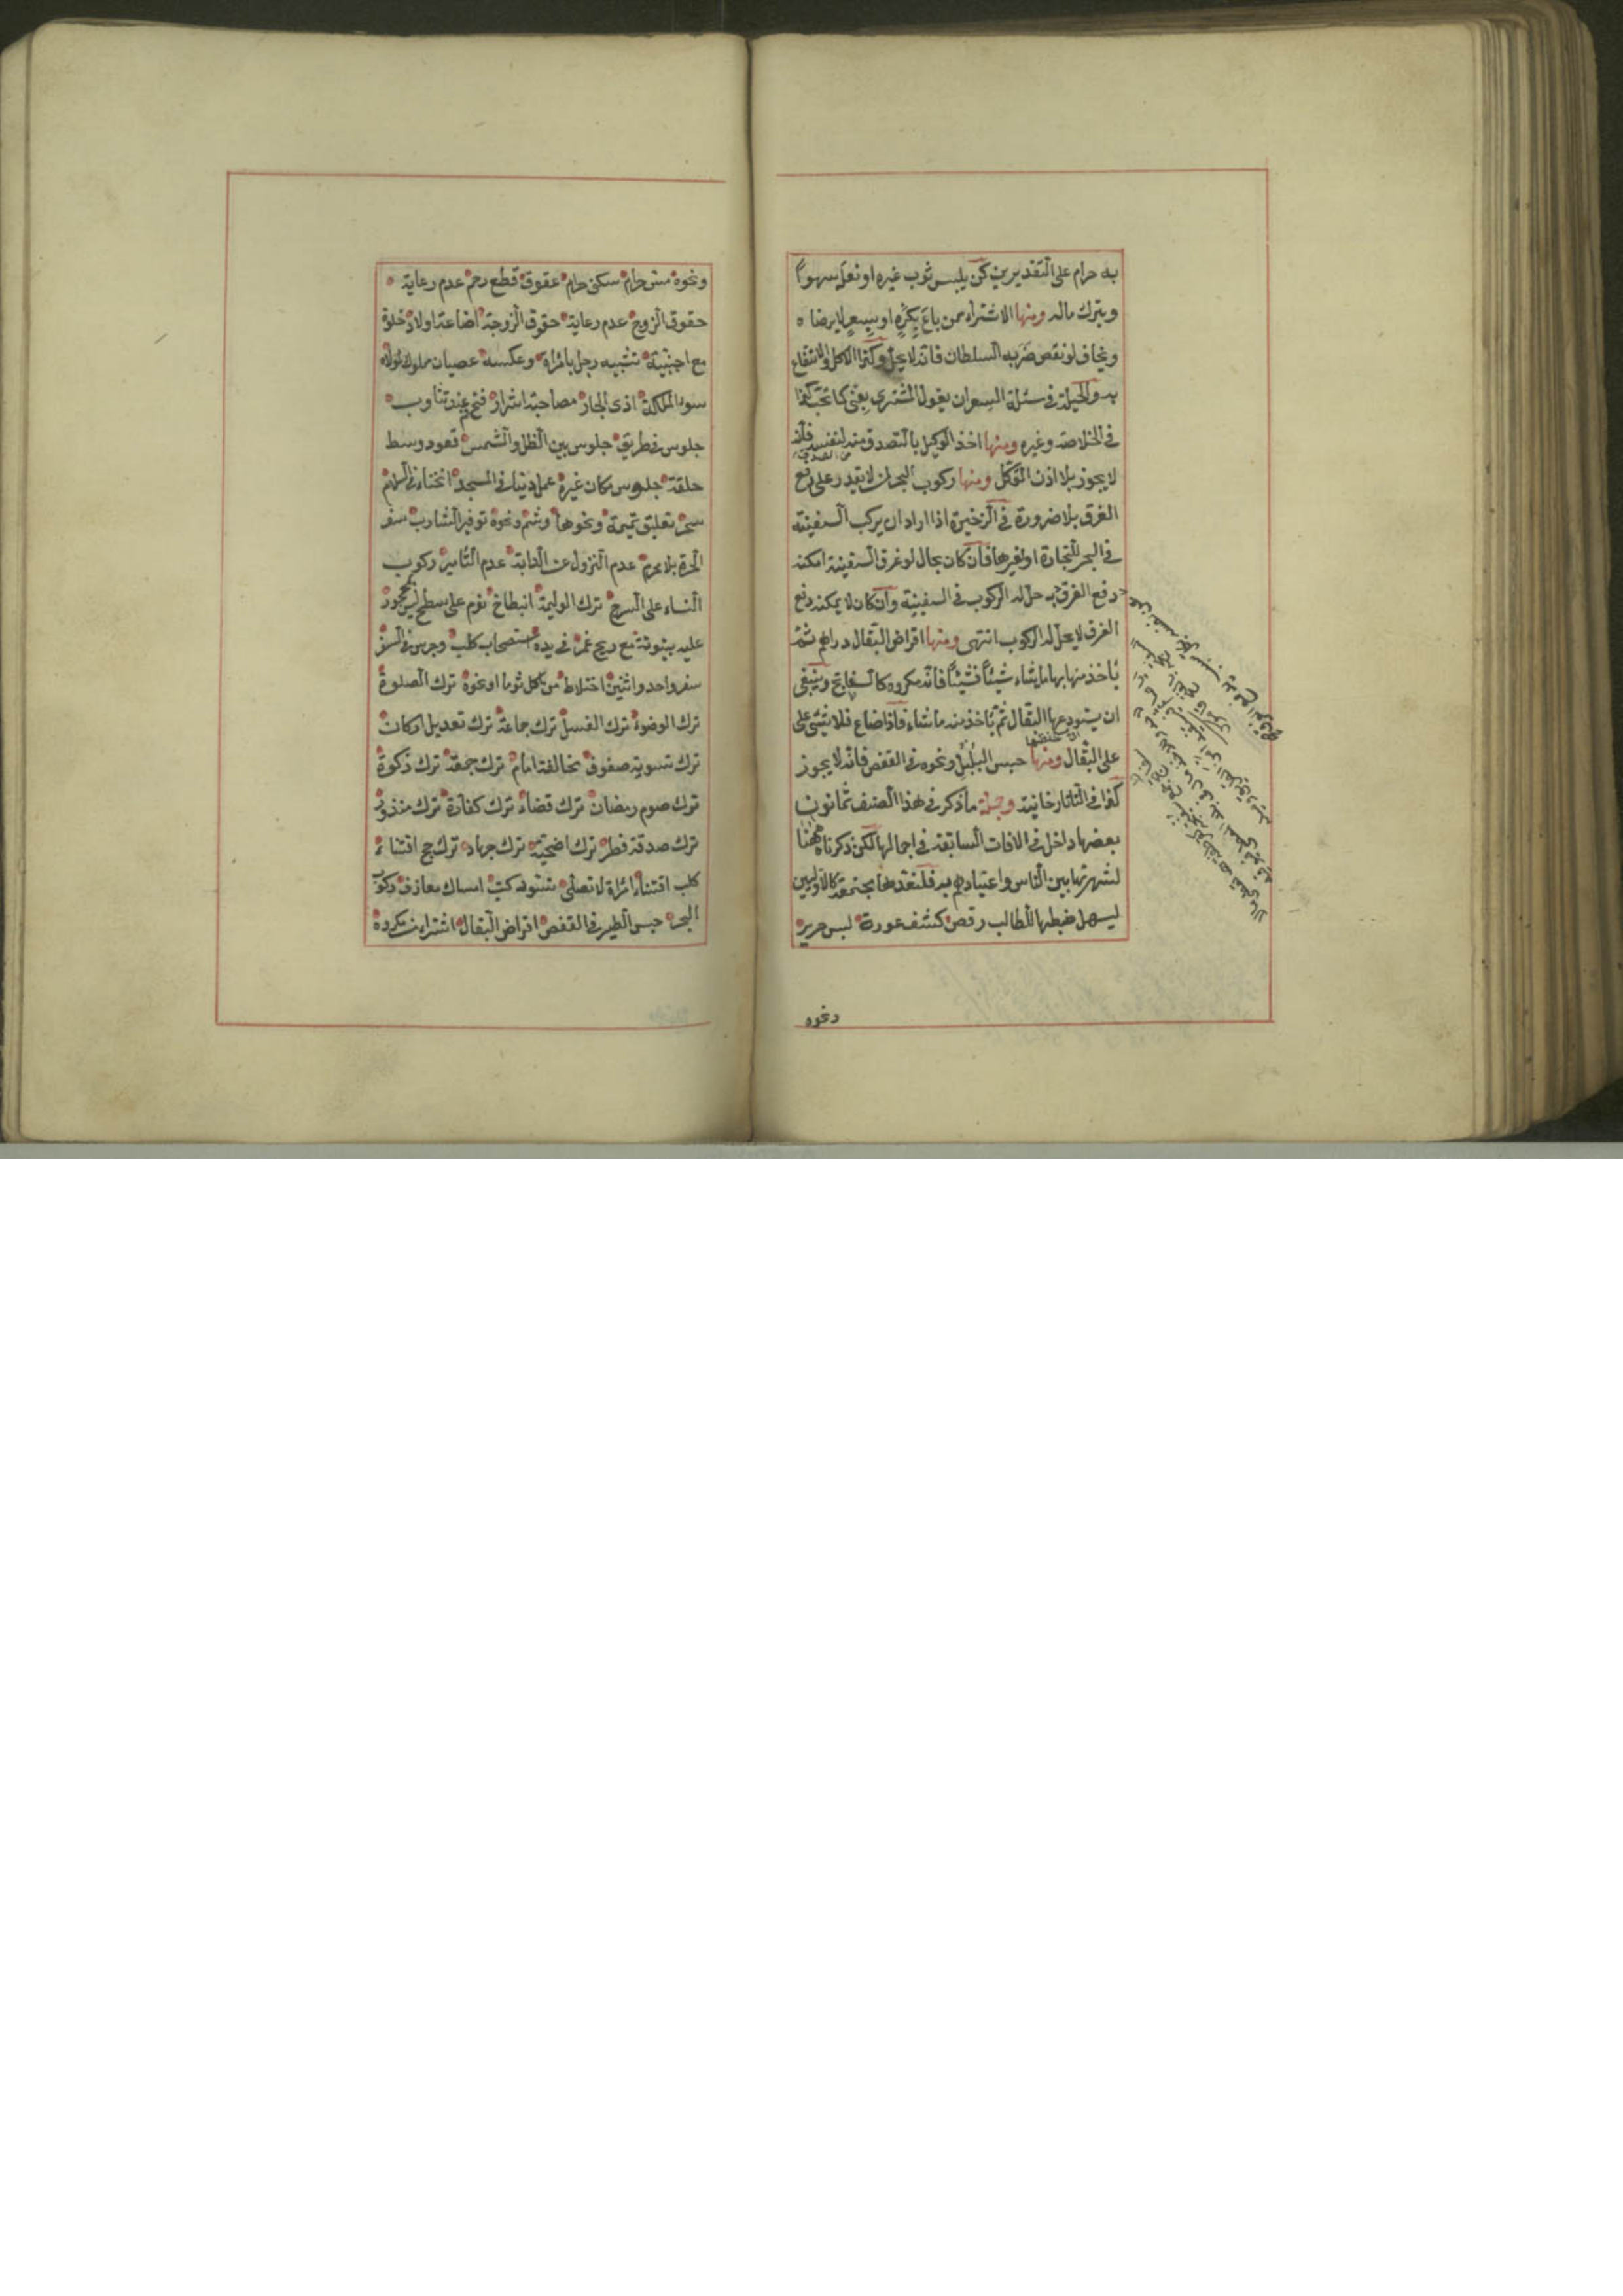 به حرام على التقديرين كمن يلبس ثوب غيره او نعله سهوا
ويترك ماله ومنها الاشتراء ممن باع بكره او بسعر لا يرضاه
ويخاف لو نقص ضربه السلطان فانه لا يحل وكذا الاكل والانتفاع
به والحيلة فى مسئلة السعر ان يقول المشترى بعنى كما تحب كذا
فى الخلاصة وغيره ومنها اخذ الوكيل بالتصدق منه لنفسه فانه
لا يجوز بلا اذن الموكل ومنها ركوب البحر لمن لا يقدر على دفع
الغرق بلا ضرورة فى الذخيرة اذا اراد ان يركب السفينة
فى البحر للتجارة او لغيرها فان كان بحال لو غرق السفينة امكنه
دفع الغرق به حل له الركوب فى السفينة وان كان لا يمكنه دفع
الغرق لا يحل له الركوب انتهى ومنها اقراض البقال دراهم ثم
يأخذ منها بها ما يشاء شيئا فشيئا فانه مكروه كالسفاتج وينبغى
ان يستودعها البقال ثم يأخذ منه ما شاء فاذا ضاع فلا شئ على
على البقال ومنها حبس البلبل ونحوه فى القفص فانه لا يجوز
كذا فى التاتارخانية وجملة ما ذكر فى هذا الصنف ثمانون
بعضها داخل فى الافات السابقة فى اجمالها لكن ذكرناه ههنا
لشهرتها بين الناس واعتيادهم به فلنعدها مجتمعة كالاولين
ليسهل ضبطها للطالب رقص كشف عورة لبس حرير
ونحوه
ونحوه مس حرام سكنى حرام عقوق قطع رحم عدم رعاية
حقوق الزوج عدم رعاية حقوق الزوجة اضاعة اولاد خلوة
مع اجنبية تشبيه رجل بامرأة وعكسه عصيان مملوك لمولاه
سوء الملكة اذى الجار مصاحبة اشرار فتح فم عند تثاوب
جلوس فى طريق جلوس بين الظل والشمس قعود وسط
حلقة جلوس مكان غيره عمل دنيا فى المسجد انحناء فى السلام
سحر تعليق تميمة ونحوها وشم ونحوه توفير الشارب سفر
الحرة بلا محرم عدم النزول عن الدابة عدم التأمير ركوب
النساء على السرج ترك الوليمة انبطاح نوم على سطح ليس بمحجور
عليه بيتوتة مع ريح غمر فى يده استصحاب كلب وجرس فى السفر
سفر واحد واثنين اختلاط من ياكل ثوما او نحوه ترك الصلوة
ترك الوضوء ترك الغسل ترك جماعة ترك تعديل اركان
ترك تسوية صفوف مخالفة امام ترك جمعة ترك زكوة
ترك صوم رمضان ترك قضاء ترك كفارة ترك منذور
ترك صدقة فطر ترك اضحية ترك جهاد ترك حج اقتناء
كلب اقتناء امرأة لا تصلى امساك معازف ركوب
البحر حبس الطير فى القفص اقراض البقال اشتراء من مكروه